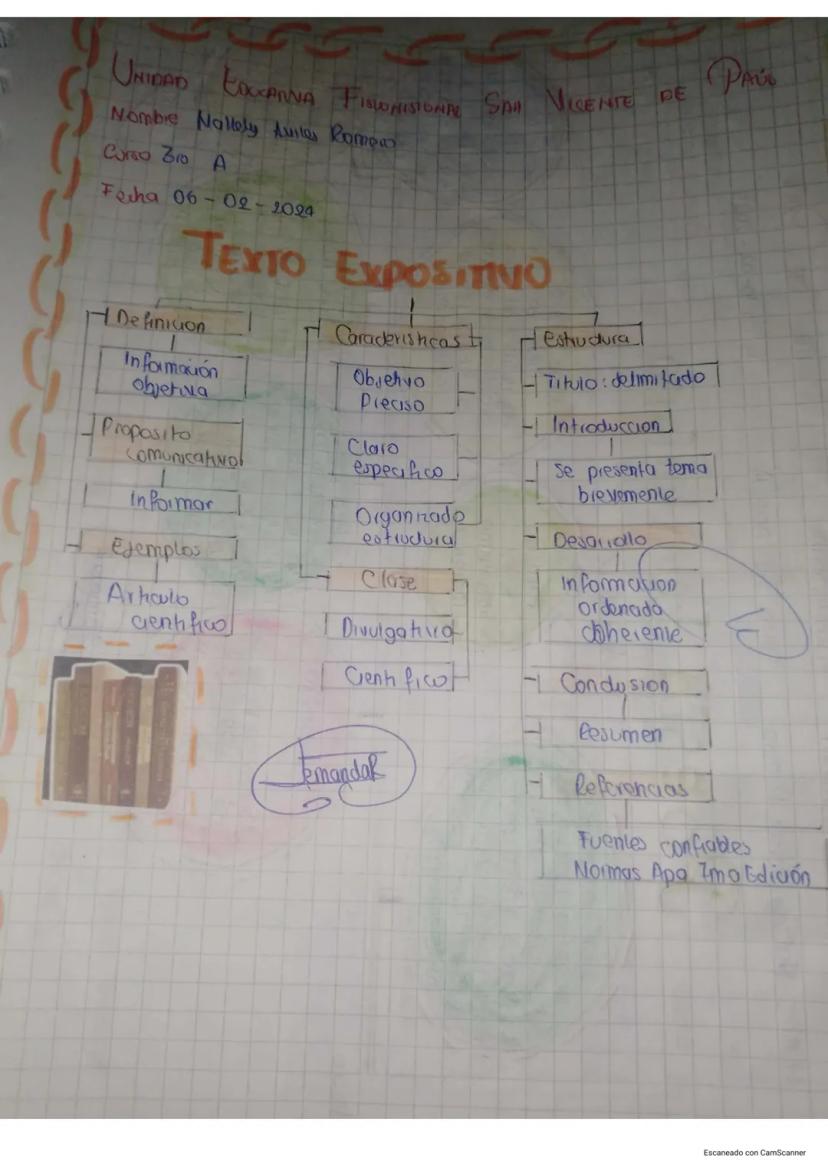 Unidad Educativa Fiscomisional San Vicente de Paúl
Nombre Nallely Aviles Romero
Curso 3ro A
Fecha 06-02-2024
TEXTO EXPOSITIVO
Definicion
Información
objetiva
Proposito
comunicativo
Informar
Ejemplos
Articulo
cientifico
Caracteristicas
Objetivo
Preciso
Claro
especifico
Organizado
estructura
Clase
Divulgativo
Cientifico
estructura
Titulo: delimitado
Introduccion
Se presenta tema
brevemente
Desarrollo
Informacion
ordenada
coherente
Conclusion
Resumen
Referencias
Fuentes confiables
Normas Apa 7ma Edición
Escaneado con CamScanner